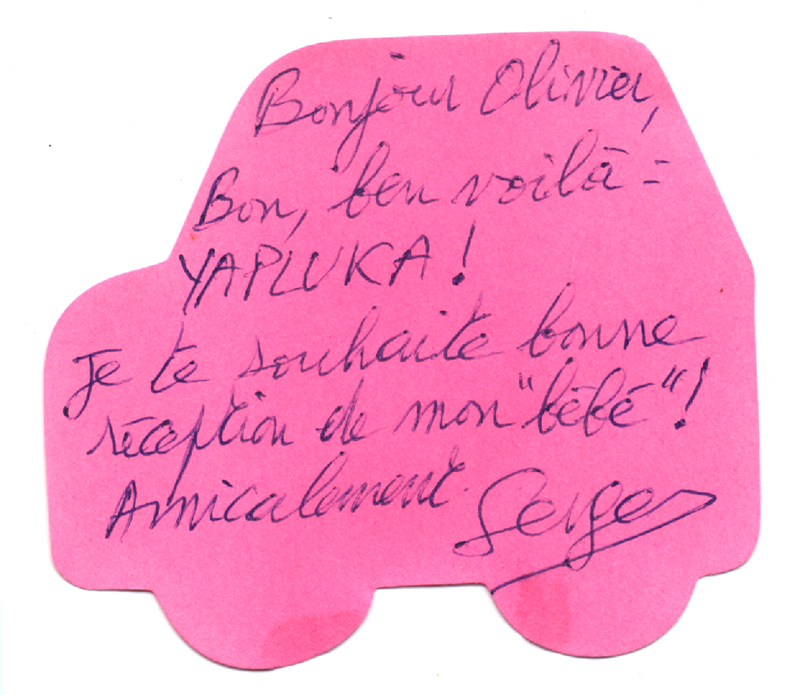 Bonjour Olivier,
Bon, ben voilà :
YAPLUKA !
Je te souhaite bonne
réception de mon "bébé" !
Amicalement.
Serge